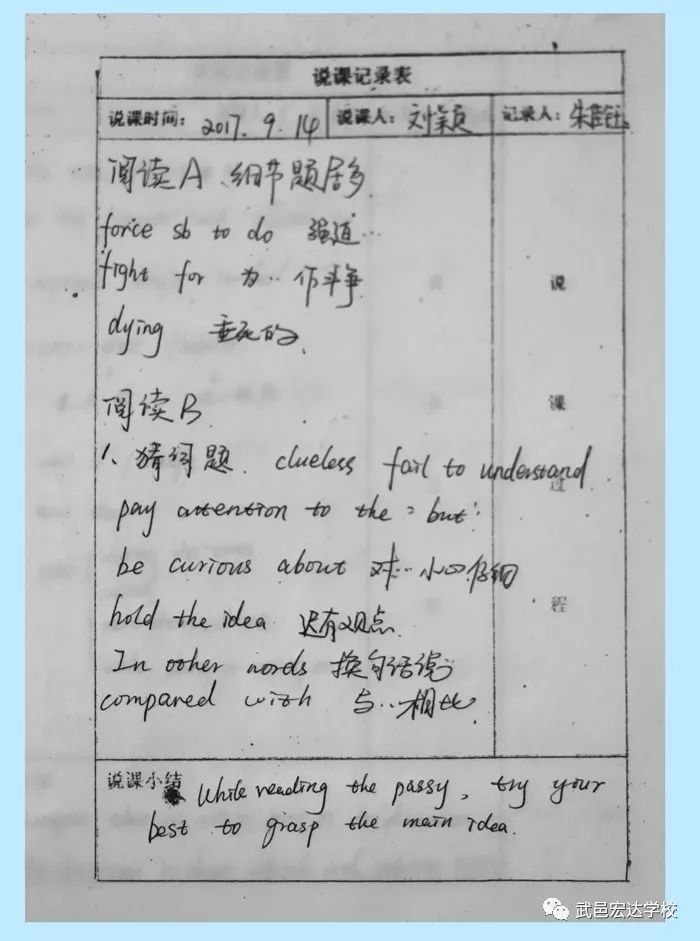 说课记录表
说课时间: 2017. 9. 14 说课人: 刘颖 记录人: 朱
阅读A、细节题居多.
force sb to do 强迫…
fight for 为… 作斗争
dying 垂死的
说
阅读B
课
1、猜词题. clueless fail to understand
过
pay attention to the "but"
be curious about 对… 小心仔细
程
hold the idea 迟有观点.
In other words 换句话说
compared with 与…相比
说课小结
While reading the passy, try your
best to grasp the main idea.
武邑宏达学校